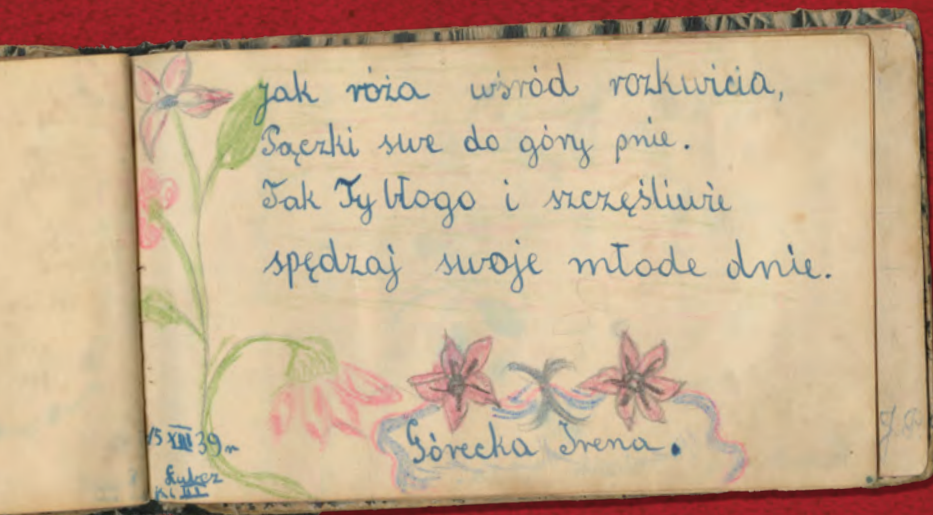 Jak róża wśród rozkwicia,
Pączki swe do góry pnie.
Tak Ty błogo i szczęśliwie
spędzaj swoje młode dnie.
Górecka Irena.
39 r